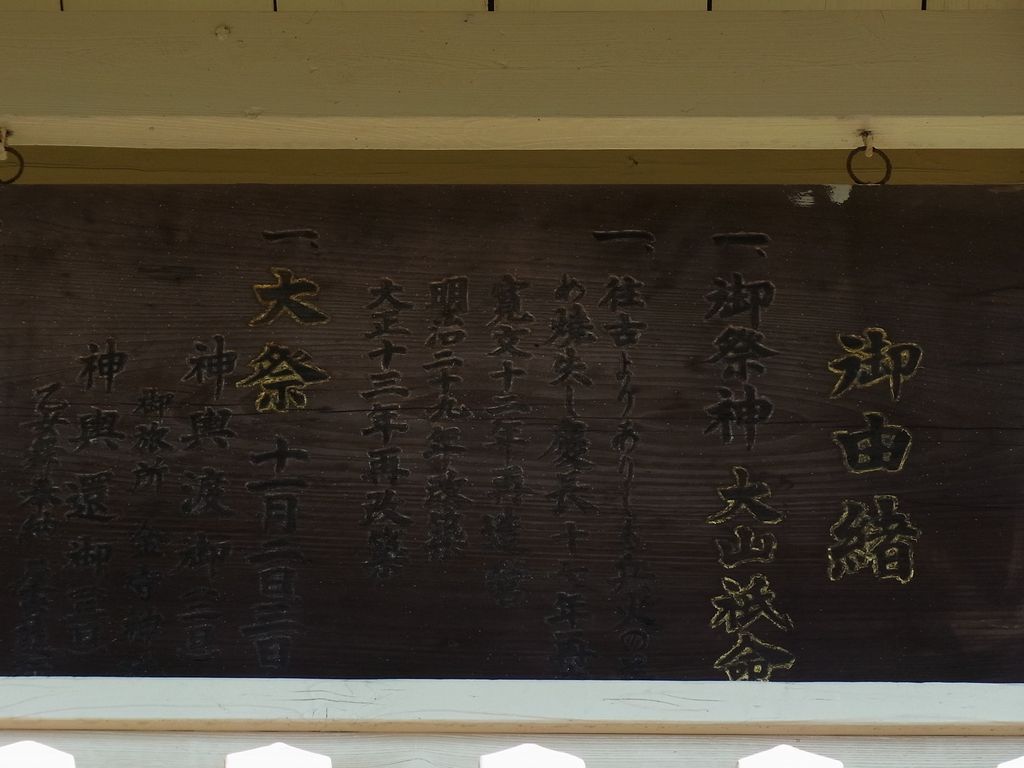 御由緒
一、御祭神 大山祇命
一、往古よりありしも兵火の
め焼失し慶長十七年再
寛文十二年再造営
明治二十九年改築
大正十三年再改築
一、大祭 十一月二日三日
神輿渡御(二日)
御旅所 金守神
神輿還御(三日)
乙女舞奉納